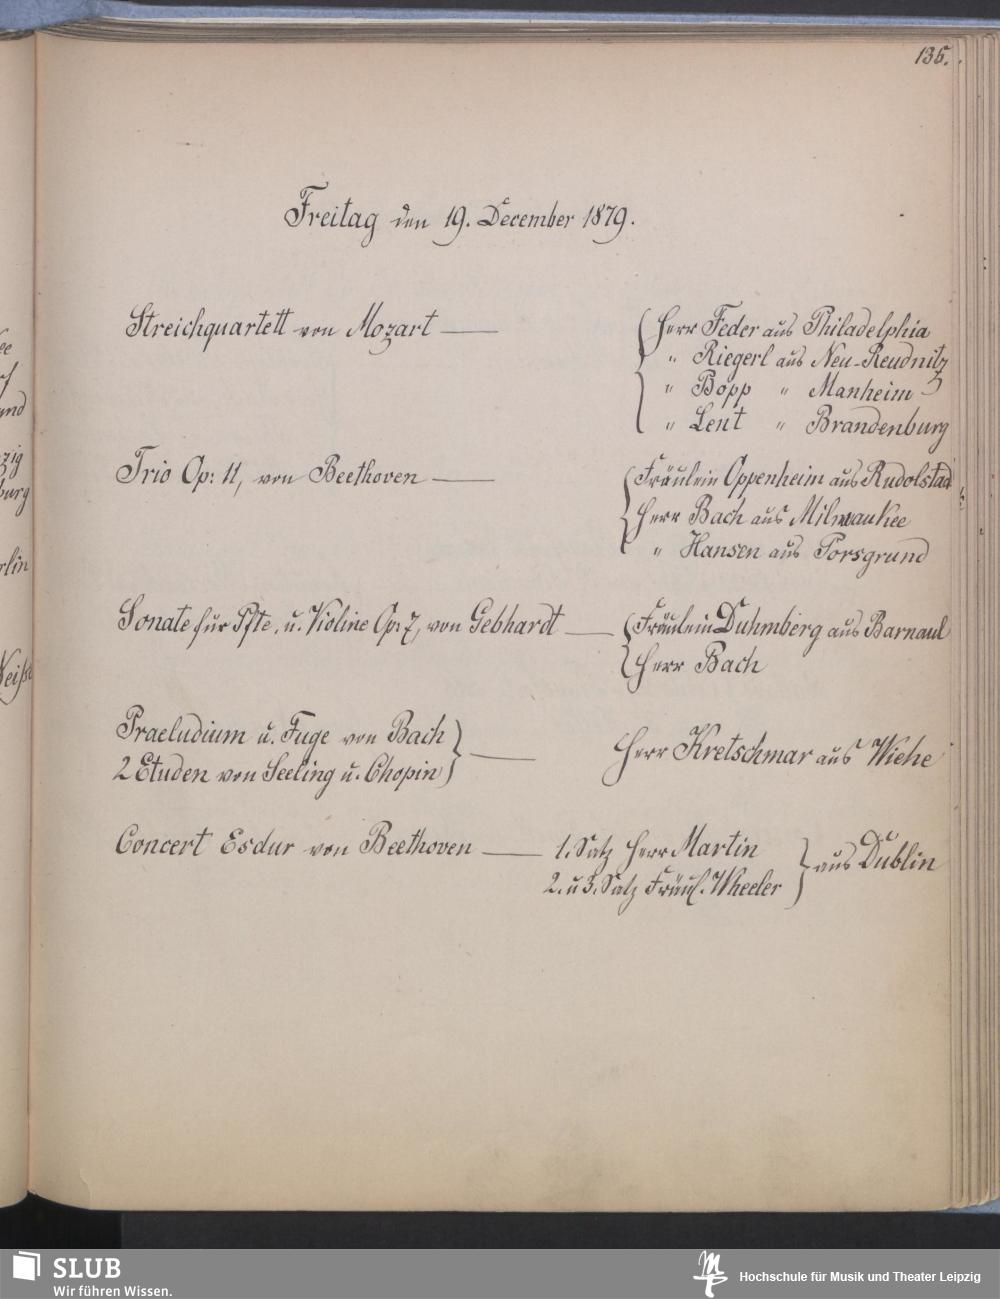 135.
Freitag den 19. December 1879.
Streichquartett von Mozart —
Herr Feder aus Philadelphia
" Riegerl aus Neu-Reudnitz
" Bopp " Manheim
" Lent " Brandenburg
Trio Op: 11, von Beethoven —
Fräulein Oppenheim aus Rudolstad
Herr Bach aus Milwaukee
" Hansen aus Porsgrund
Sonate für Pfte. u. Violine Op: 7, von Gebhardt —
Fräulein Duhmberg aus Barnaul
Herr Bach
Praeludium u. Fuge von Bach
2 Etuden von Seeling u. Chopin —
Herr Kretschmar aus Wiehe
Concert Esdur von Beethoven —
1. Satz Herr Martin
2. u 3. Satz Fräul. Wheeler
aus Dublin
SLUB
Wir führen Wissen.
Hochschule für Musik und Theater Leipzig